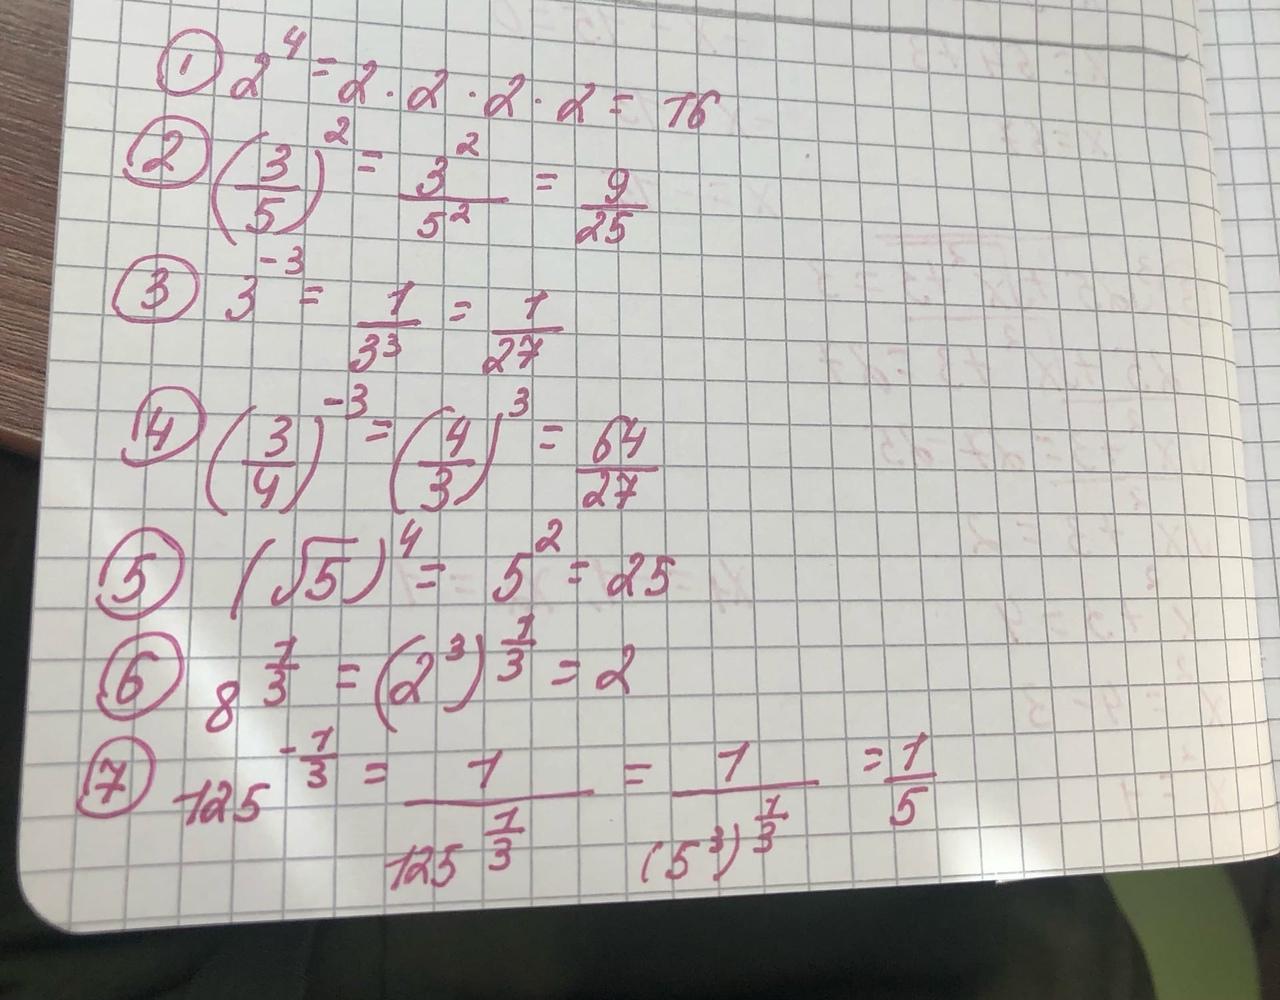 ① 2⁴ = 2 · 2 · 2 · 2 = 16
② (3/5)² = 3²/5² = 9/25
③ 3⁻³ = 1/3³ = 1/27
④ (3/4)⁻³ = (4/3)³ = 64/27
⑤ (√5)⁴ = 5² = 25
⑥ 8^(1/3) = (2³)^(1/3) = 2
⑦ 125^(-1/3) = 1/125^(1/3) = 1/(5³)^(1/3) = 1/5